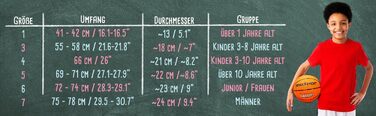 GRÖßE UMFANG DURCHMESSER GRUPPE
1 41 - 42 CM / 16.1-16.5" ~13 / 5.1" ÜBER 1 JAHRE ALT
3 55 - 58 CM / 21.6-21.8" ~18 CM / ~7" KINDER 3-8 JAHRE ALT
4 66 CM / 26" ~21 CM / ~8.2" KINDER 3-10 JAHRE ALT
5 69 - 71 CM / 27.1-27.9" ~22 CM /~8.6" ÜBER 10 JAHRE ALT
6 72 - 74 CM / 28.3-29.1" ~23 CM / 9" JUNIOR / FRAUEN
7 75 - 78 CM / 29.5 - 30.7" ~24 CM / 9.4" MÄNNER